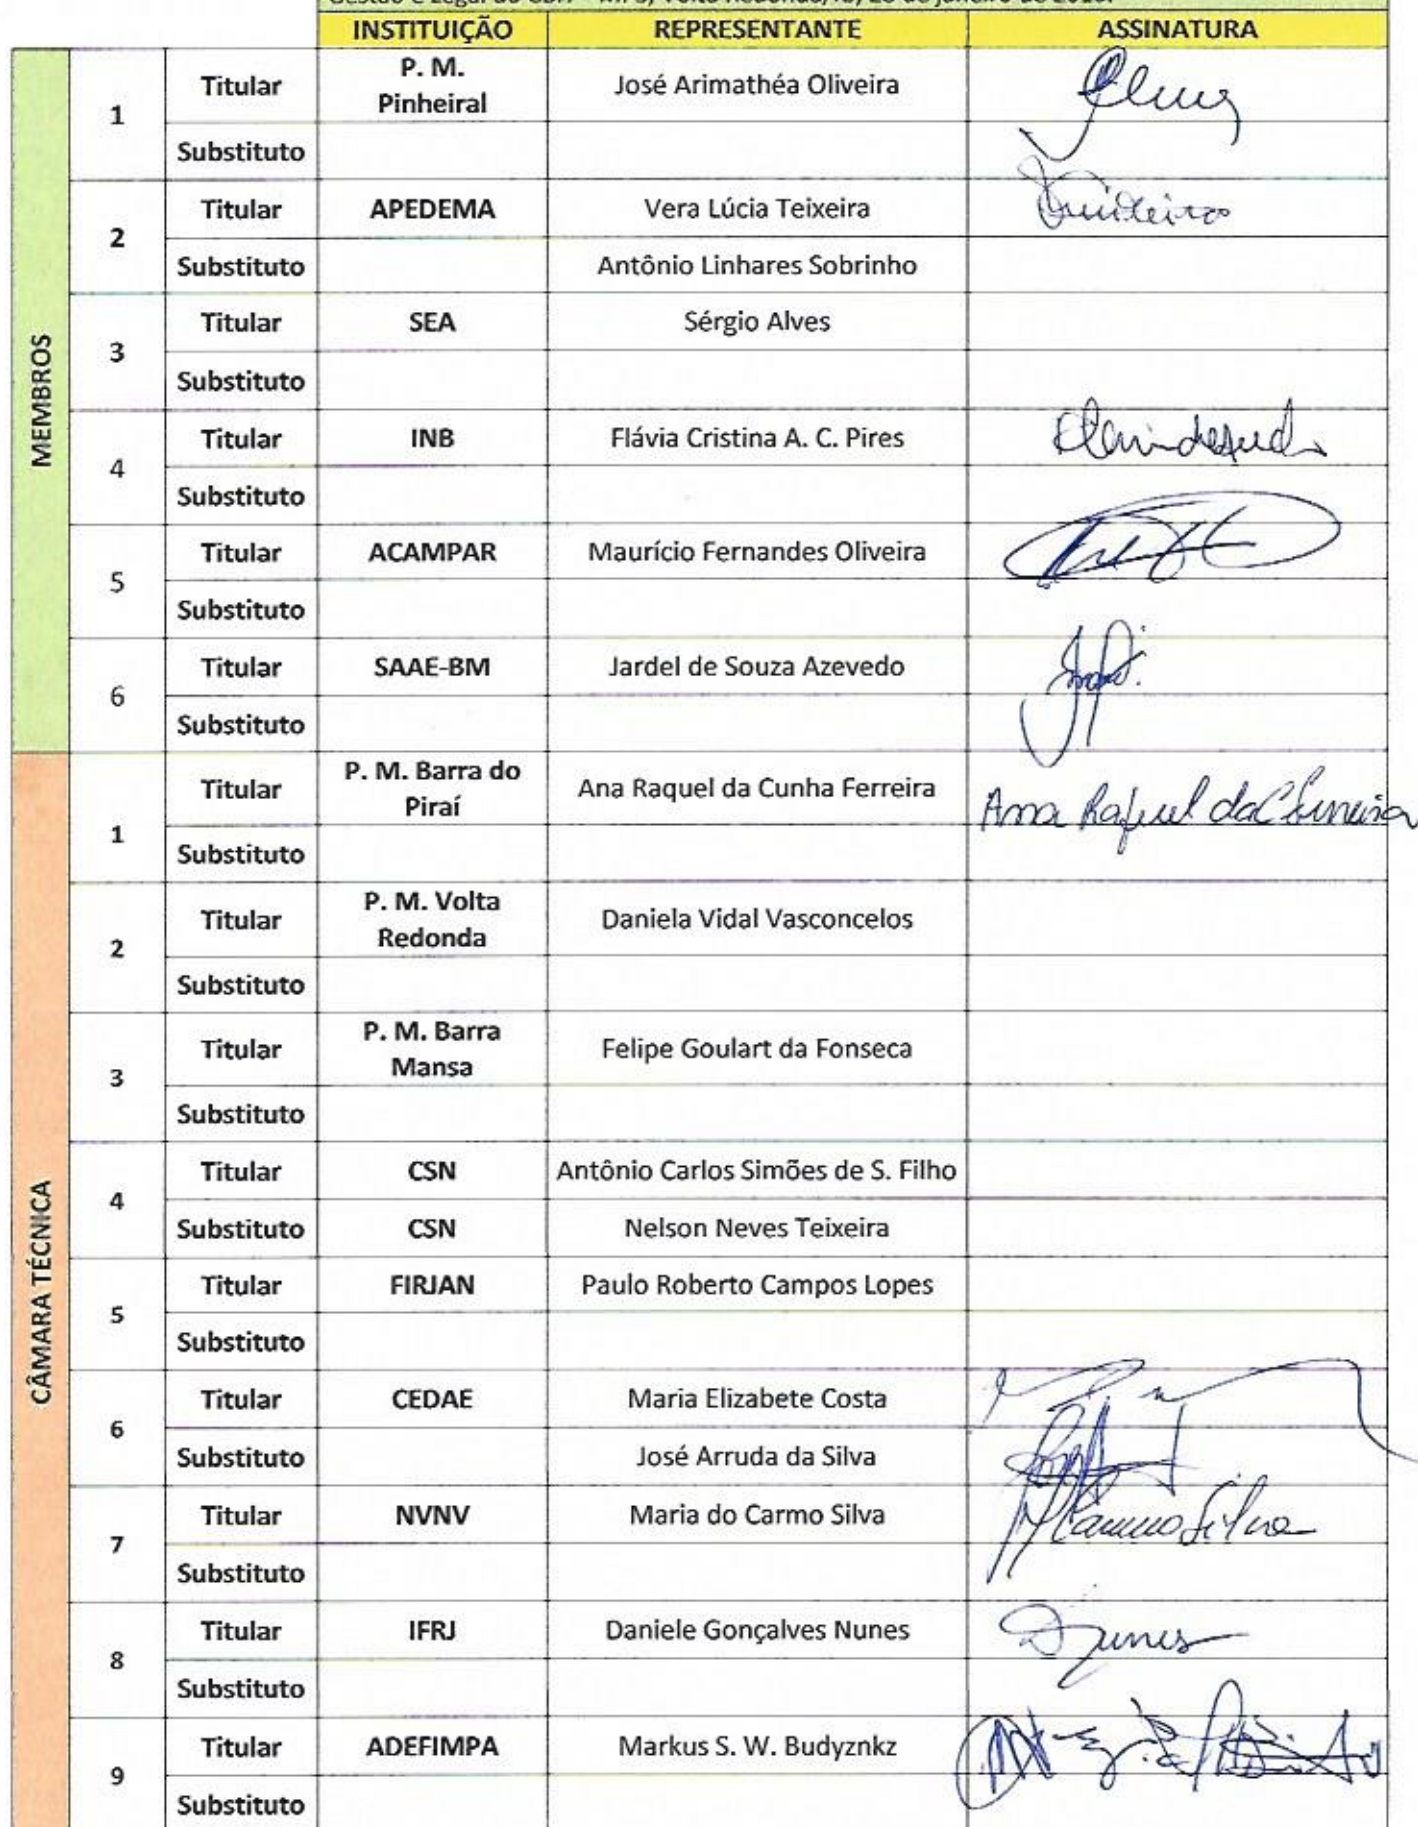 INSTITUIÇÃO REPRESENTANTE ASSINATURA
MEMBROS
1 Titular P. M. Pinheiral José Arimathéa Oliveira
Substituto
2 Titular APEDEMA Vera Lúcia Teixeira
Substituto Antônio Linhares Sobrinho
3 Titular SEA Sérgio Alves
Substituto
4 Titular INB Flávia Cristina A. C. Pires
Substituto
5 Titular ACAMPAR Maurício Fernandes Oliveira
Substituto
6 Titular SAAE-BM Jardel de Souza Azevedo
Substituto
CÂMARA TÉCNICA
1 Titular P. M. Barra do Piraí Ana Raquel da Cunha Ferreira Ana Raquel da C Ferreira
Substituto
2 Titular P. M. Volta Redonda Daniela Vidal Vasconcelos
Substituto
3 Titular P. M. Barra Mansa Felipe Goulart da Fonseca
Substituto
4 Titular CSN Antônio Carlos Simões de S. Filho
Substituto CSN Nelson Neves Teixeira
5 Titular FIRJAN Paulo Roberto Campos Lopes
Substituto
6 Titular CEDAE Maria Elizabete Costa
Substituto José Arruda da Silva
7 Titular NVNV Maria do Carmo Silva MCarmo Silva
Substituto
8 Titular IFRJ Daniele Gonçalves Nunes DNunes
Substituto
9 Titular ADEFIMPA Markus S. W. Budyznkz
Substituto